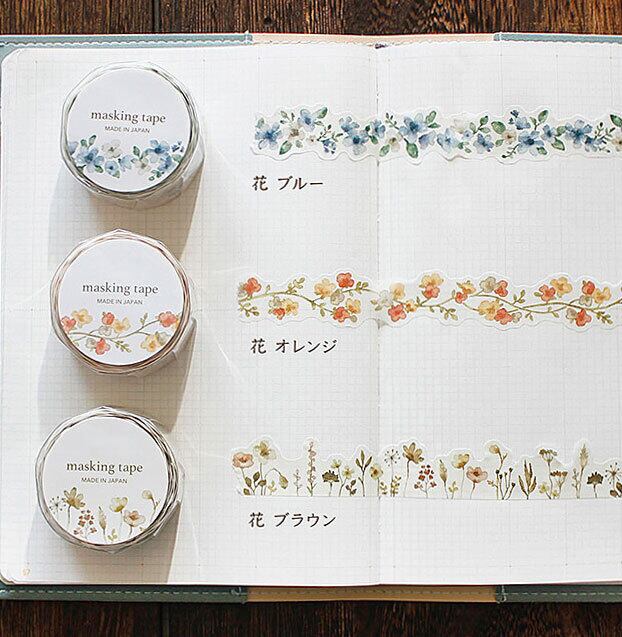 masking tape
MADE IN JAPAN
花 ブルー
masking tape
MADE IN JAPAN
花 オレンジ
masking tape
MADE IN JAPAN
花 ブラウン
67